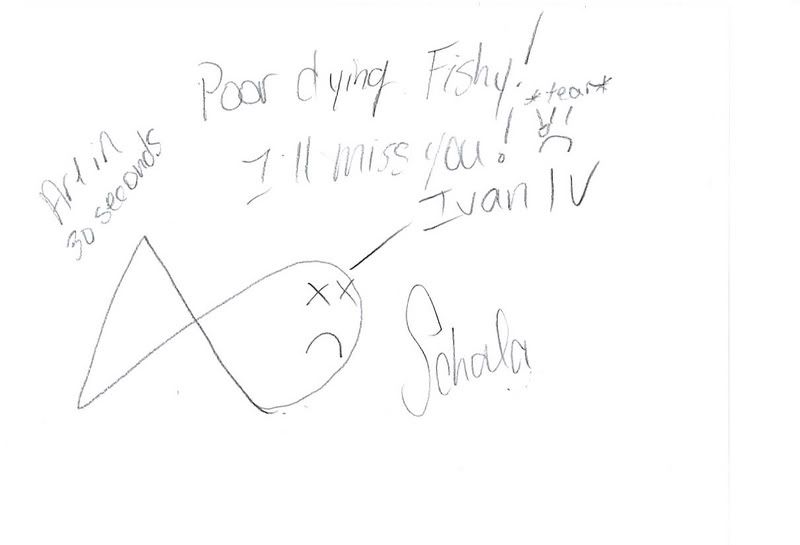 Poor dying Fishy!
*tear*
I'll miss you!
Ivan IV
Art in
30 seconds
Schala